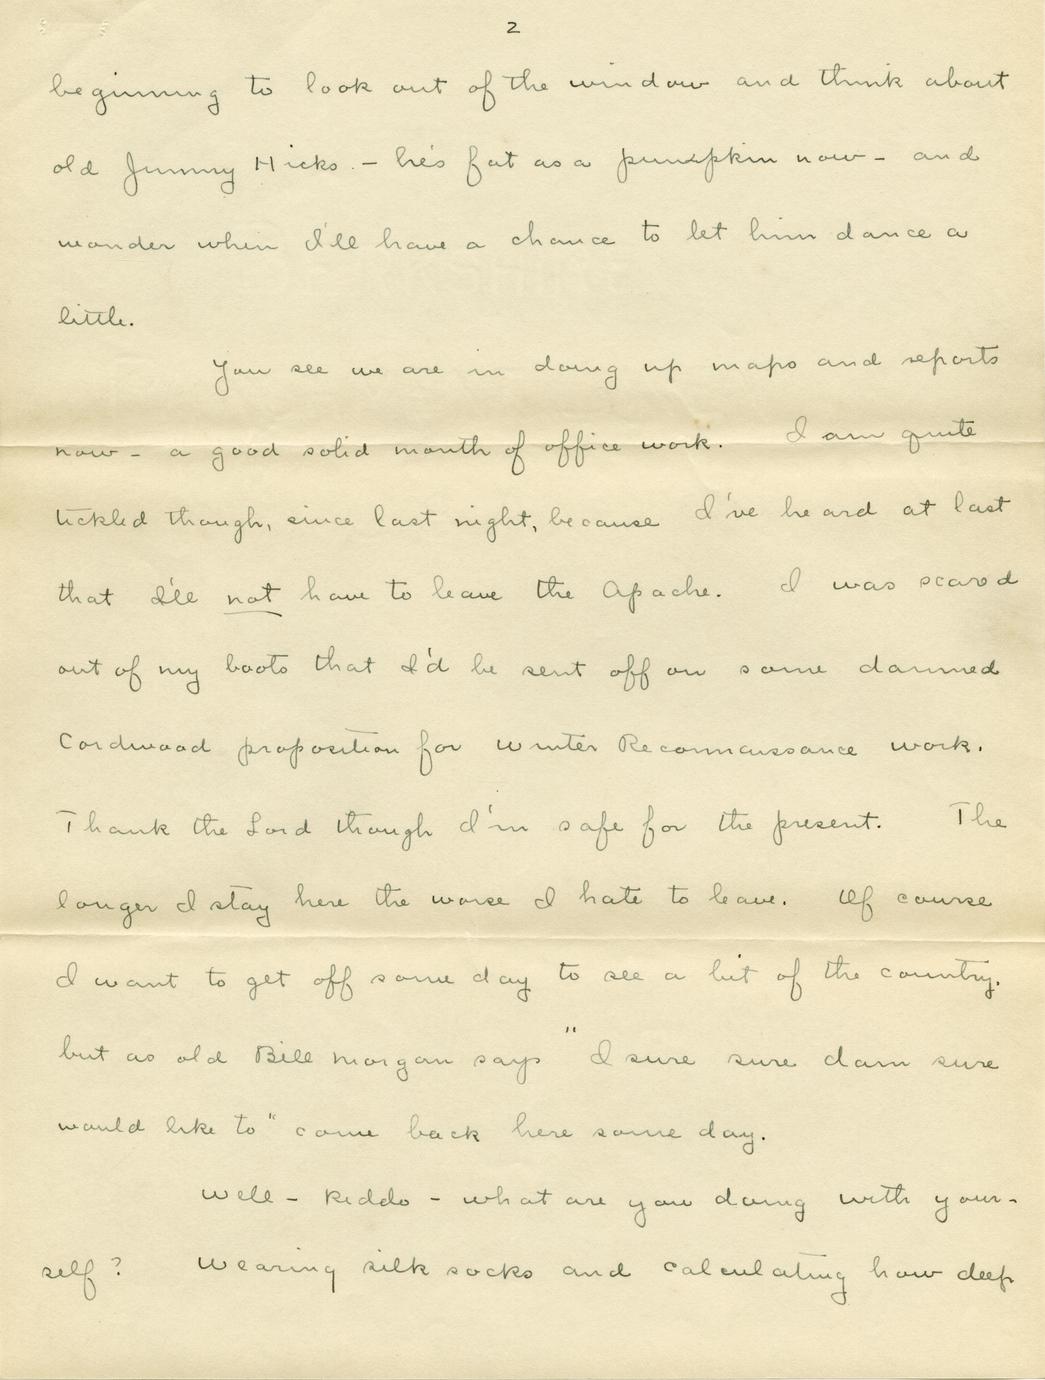 2
beginning to look out of the window and think about
old Jimmy Hicks. - he's fat as a pumpkin now - and
wonder when I'll have a chance to let him dance a
little.
You see we are in doing up maps and reports
now - a good solid month of office work. I am quite
tickled though, since last night, because I've heard at last
that I'll not have to leave the Apache. I was scared
out of my boots that I'd be sent off on some damned
Cordwood proposition for winter Reconnaissance work.
Thank the Lord though I'm safe for the present. The
longer I stay here the worse I hate to leave. Of course
I want to get off some day to see a bit of the country,
but as old Bill Morgan says "I sure sure dam sure
would like to" come back here some day.
Well - Kiddo - what are you doing with your-
self? Wearing silk socks and calculating how deep